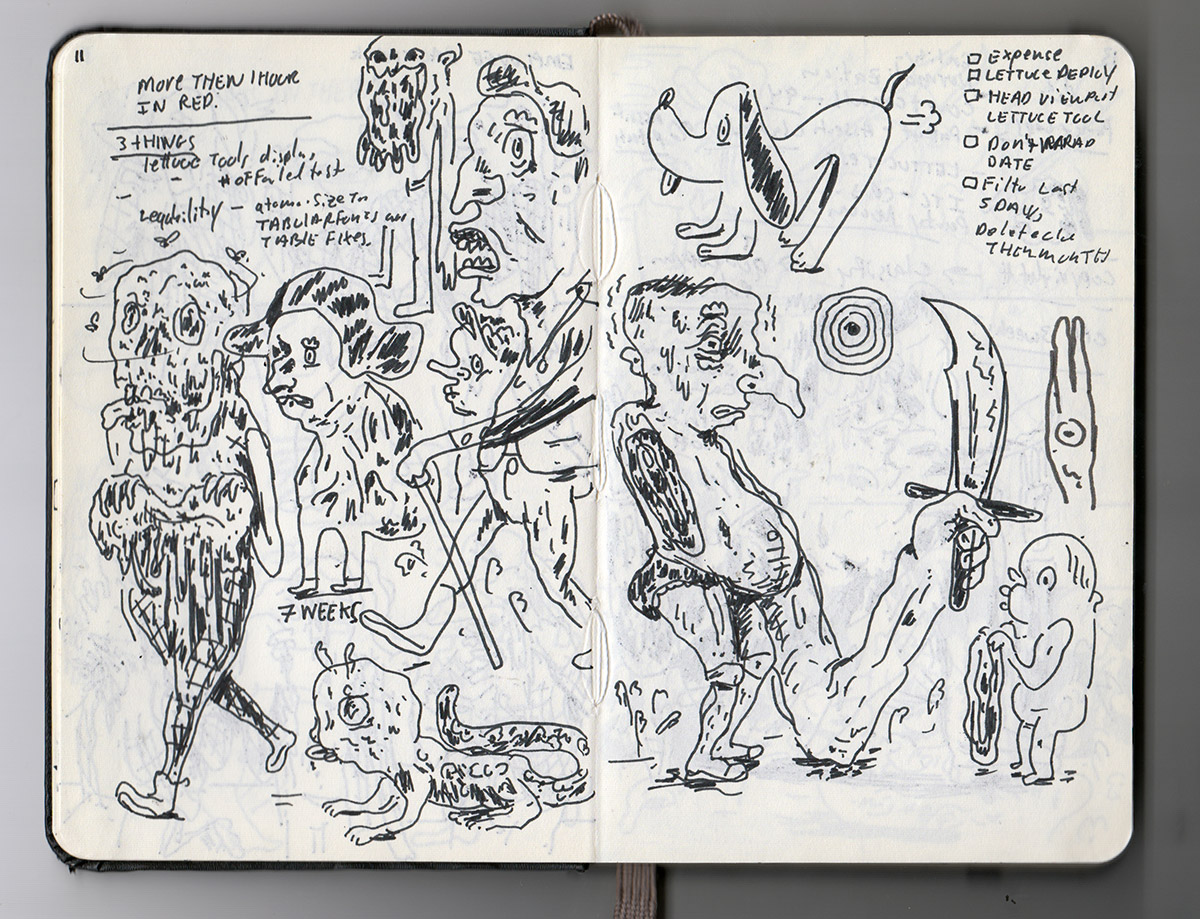 11
MORE THEN 1 HOUR
IN RED.
3 THINGS
lettuce Tools display
# of Failed test
- atomic-size to
TABULAR FONTS on
TABLE Fixes.
7 WEEKS
□ Expense
□ LETTUCE DEPLOY
□ HEAD VIEWPORT
LETTUCE TOOL
□ Don't
DATE
□ Filter Last
5 DAYS
THEN MONTH